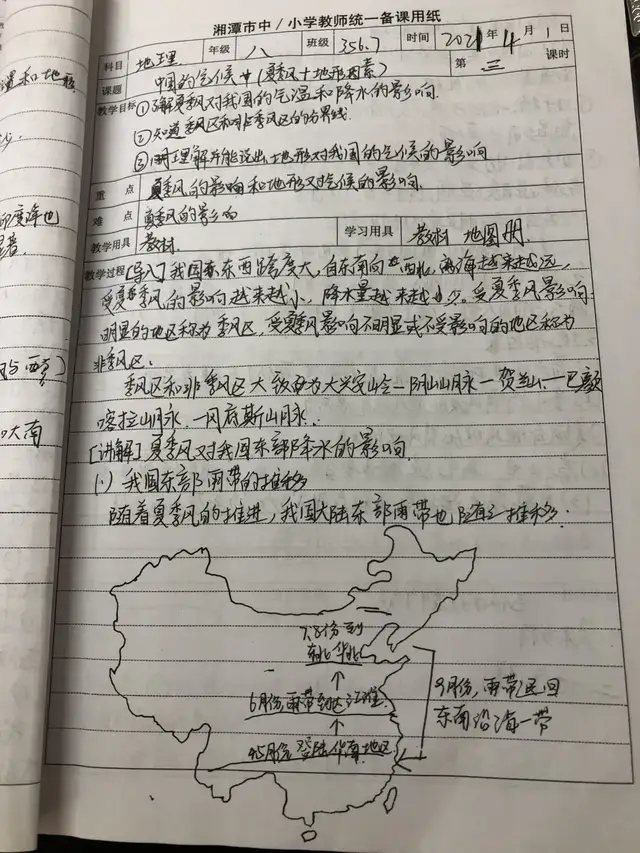 湘潭市中/小学教师统一备课用纸
科目 地理 年级 八 班级 356.7 时间 2021年4月1日
课题 中国的气候 (夏季风+地形因素) 第三课时
教学目标 ①了解夏季风对我国的气温和降水的影响.
②知道季风区和非季风区的分界线.
③理解并能说出地形对我国的气候的影响
重点 夏季风的影响和地形对气候的影响.
难点 夏季风的影响
教学用具 教材. 学习用具 教材 地图册.
教学过程 [导入] 我国东西跨度大,自东南向西北,离海越来越远,
受夏季风的影响越来越小,降水量越来越少。受夏季风影响
明显的地区称为季风区,受夏季风影响不明显或不受影响的地区称为
非季风区.
季风区和非季风区大致为大兴安岭—阴山山脉—贺兰山—巴颜
喀拉山脉—冈底斯山脉.
[讲解] 夏季风对我国东部降水的影响.
(1) 我国东部雨带的推移
随着夏季风的推进,我国大陆东部雨带也随之推移.
7.8份到
东北华北
6月份,雨带到达江淮
4.5月份 登陆华南地区
9月份,雨带退回
东南沿海一带
温和地形
印度洋也
显著.
与西
大南